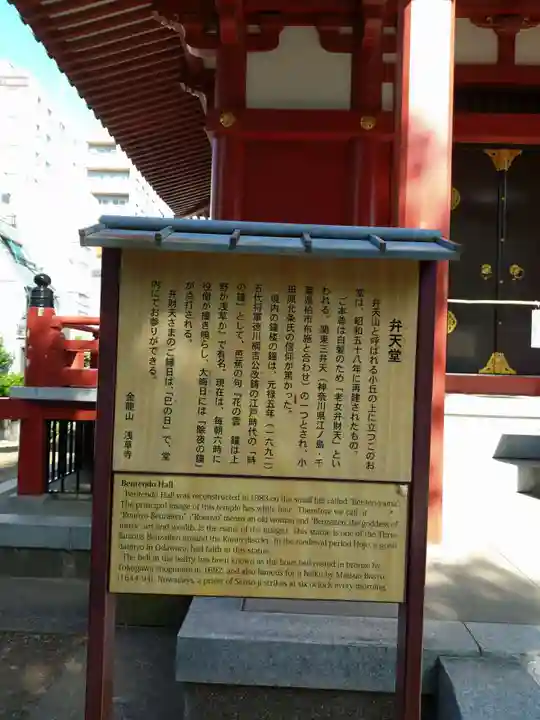 弁天堂
弁天山と呼ばれる小丘の上に立つこのお
堂は、昭和五十八年に再建されたもの。
ご本尊は白髪のため「老女弁財天」とい
われる。関東三弁天（神奈川県江ノ島・千
葉県柏市布施と合わせ）の一つとされ、小
田原北条氏の信仰が篤かった。
境内の鐘楼の鐘は、元禄五年（一六九二）
五代将軍徳川綱吉公改鋳の江戸時代の「時
の鐘」として、芭蕉の句『花の雲 鐘は上
野か浅草か』で有名。現在は、毎朝六時に
役僧が撞き鳴らし、大晦日には『除夜の鐘』
が点打される。
弁財天さまのご縁日は、「巳の日」で、堂
内にてお参りができる。
金龍山 浅草寺
Bentendo Hall
Bentendo Hall was reconstructed in 1983 on the small hill called "Benten-yama".
The principal image of this temple has white hair. Therefore we call it
"Rounyo-Benzaiten". ("Rounyo" means an old woman and "Benzaiten, the goddess of
music, art and wealth, is the name of the image.) This statue is one of the Three
famous Benzaiten around the Kanto district. In the medieval period Hojo, a great
daimyo in Odawara, had faith in this statue.
The bell in the belfry has been known as the hour bell
Tokugawa Shogunate in 1692, and also famous for a haiku by Matsuo Basyo
(1644-94). Nowadays, a priest of Senso-ji strikes at six o'clock every morning.